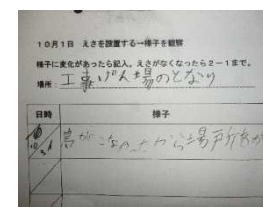 10月1日 えさを設置する→様子を観察
様子に変化があったら記入。えさがなくなったら2-1まで。
場所: 工事げん場のとなり
日時 様子
鳥がこなかったから場所をか